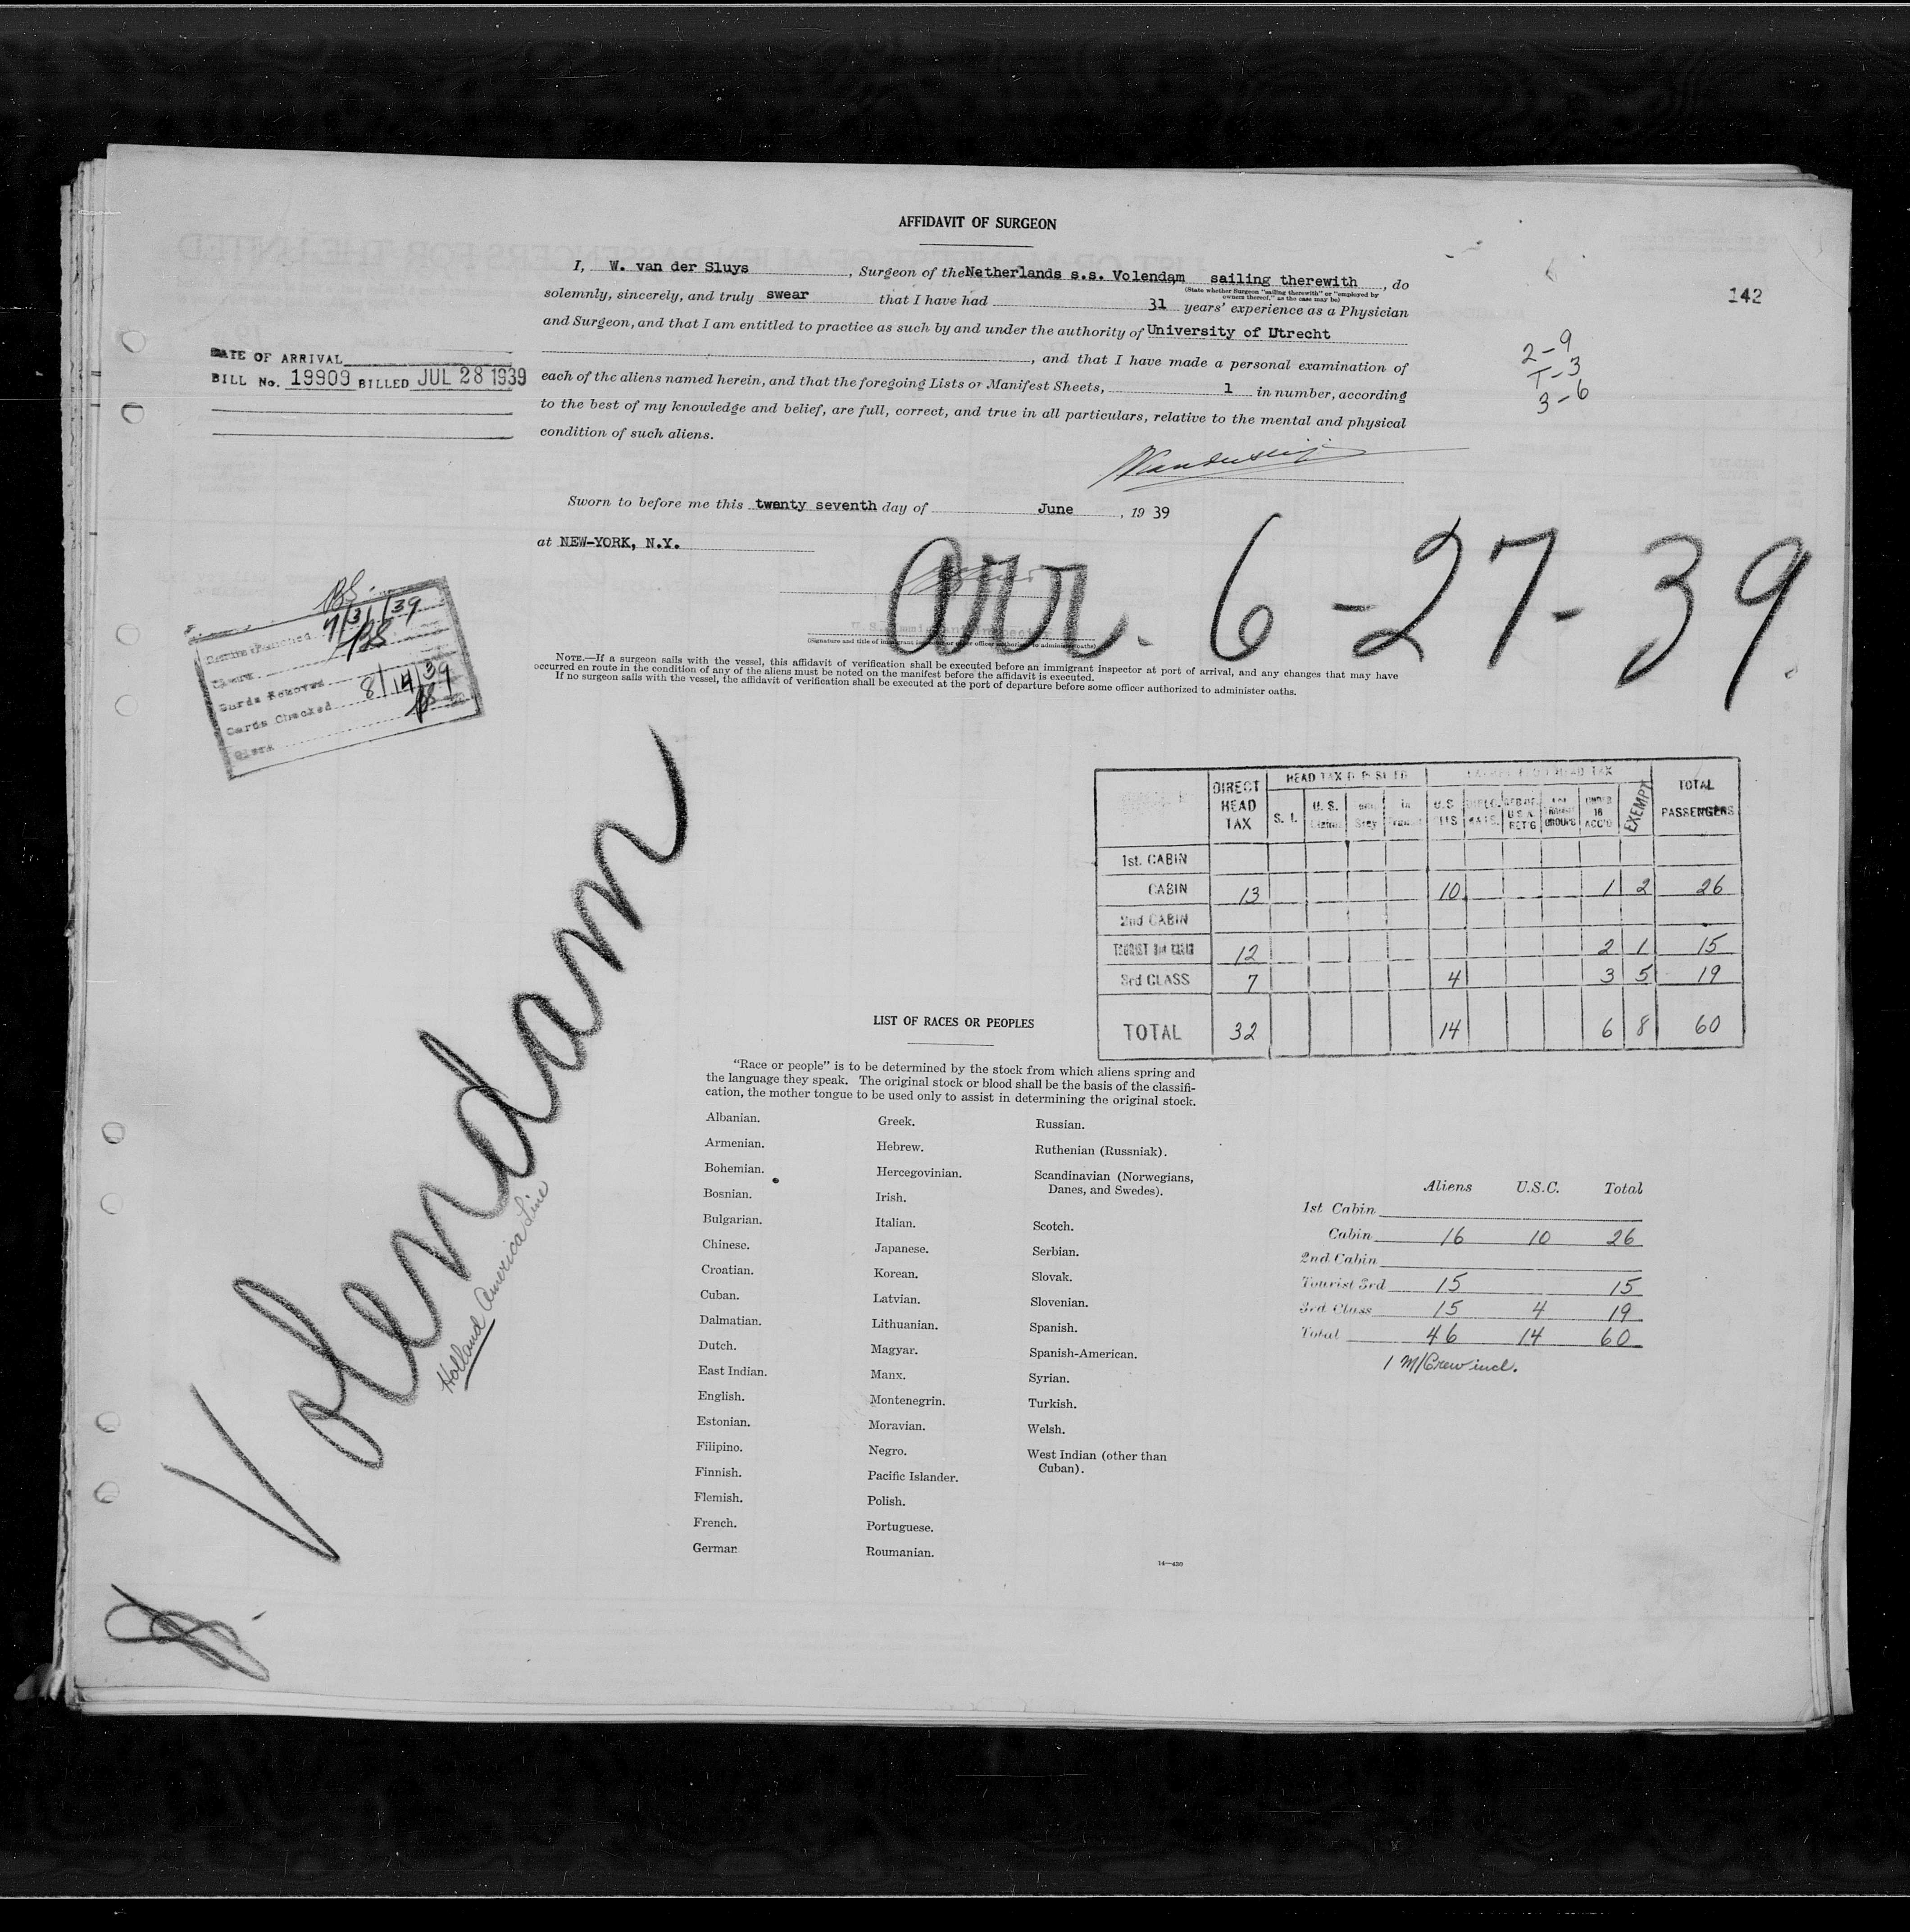 AFFIDAVIT OF SURGEON
I, W. van der Sluys, Surgeon of the Netherlands s.s. Volendam sailing therewith, do
(State whether Surgeon "sailing therewith" or "employed by
owners thereof," as the case may be)
solemnly, sincerely, and truly swear that I have had 31 years' experience as a Physician
and Surgeon, and that I am entitled to practice as such by and under the authority of University of Utrecht
, and that I have made a personal examination of
each of the aliens named herein, and that the foregoing Lists or Manifest Sheets, 1 in number, according
to the best of my knowledge and belief, are full, correct, and true in all particulars, relative to the mental and physical
condition of such aliens.
142
2-9
T-3
3-6
DATE OF ARRIVAL
BILL No. 19909 BILLED JUL 28 1939
Sworn to before me this twenty seventh day of June, 19 39
at NEW-YORK, N.Y.
arr. 6-27-39.
NOTE.—If a surgeon sails with the vessel, this affidavit of verification shall be executed before an immigrant inspector at port of arrival, and any changes that may have
occurred en route in the condition of any of the aliens must be noted on the manifest before the affidavit is executed.
If no surgeon sails with the vessel, the affidavit of verification shall be executed at the port of departure before some officer authorized to administer oaths.
7/31/39
BS
Cards Removed
Cards Checked 8/14/39
Clerk
Volendam
Holland America Line
DIRECT HEAD TAX S. I. U. S. U.S. EXEMPT TOTAL PASSENGERS
UNDER 16 ACC'D
1st. CABIN
CABIN 13 10 1 2 26
2nd CABIN
TOURIST 3rd CABIN 12 2 1 15
3rd CLASS 7 4 3 5 19
TOTAL 32 14 6 8 60
LIST OF RACES OR PEOPLES
"Race or people" is to be determined by the stock from which aliens spring and
the language they speak. The original stock or blood shall be the basis of the classifi-
cation, the mother tongue to be used only to assist in determining the original stock.
Albanian.
Armenian.
Bohemian.
Bosnian.
Bulgarian.
Chinese.
Croatian.
Cuban.
Dalmatian.
Dutch.
East Indian.
English.
Estonian.
Filipino.
Finnish.
Flemish.
French.
German
Greek.
Hebrew.
Hercegovinian.
Irish.
Italian.
Japanese.
Korean.
Latvian.
Lithuanian.
Magyar.
Manx.
Montenegrin.
Moravian.
Negro.
Pacific Islander.
Polish.
Portuguese.
Roumanian.
Russian.
Ruthenian (Russniak).
Scandinavian (Norwegians,
Danes, and Swedes).
Scotch.
Serbian.
Slovak.
Slovenian.
Spanish.
Spanish-American.
Syrian.
Turkish.
Welsh.
West Indian (other than
Cuban).
14—430
Aliens U.S.C. Total
1st Cabin
Cabin 16 10 26
2nd Cabin
Tourist 3rd 15 15
3rd Class 15 4 19
Total 46 14 60
1 M/Crew incl.